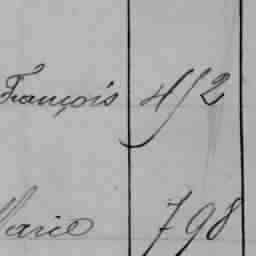 François 452
Marie 798